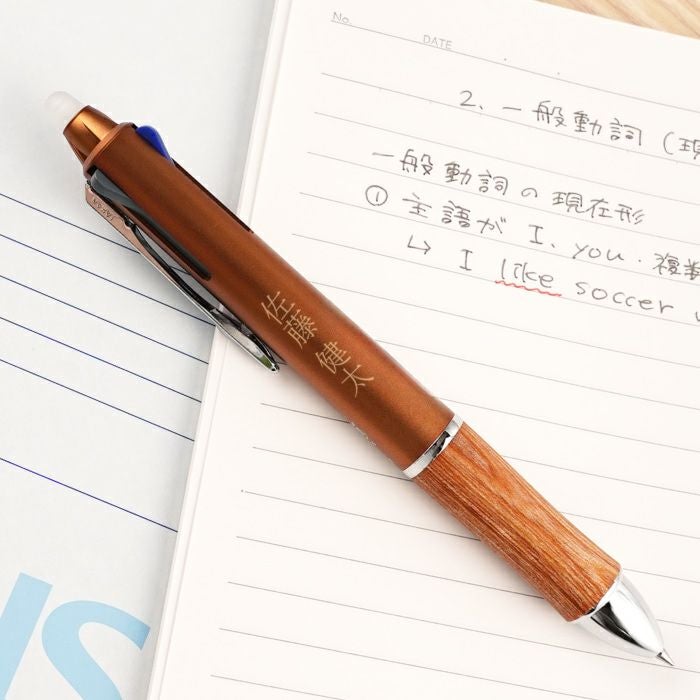 No.
DATE
2. 一般動詞 (現
一般動詞の現在形
① 主語が I、you・複数
↳ I like soccer
佐藤 健太
JAPAN